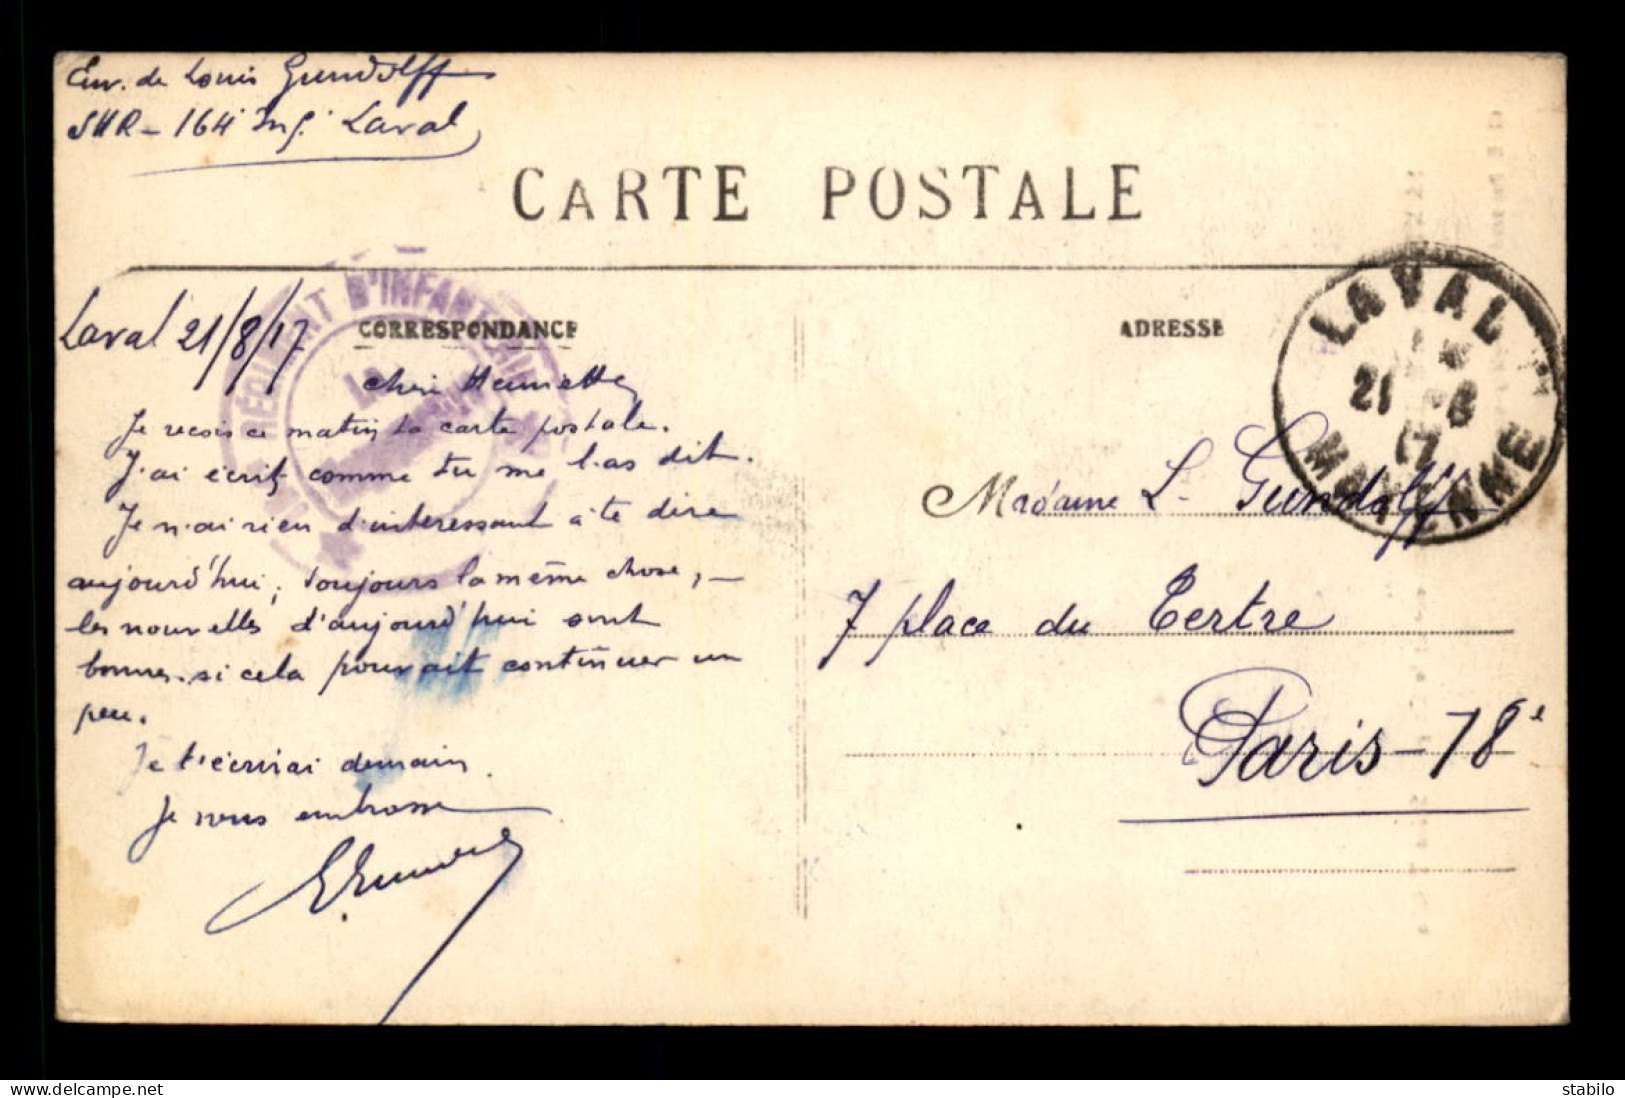 Env. de Louis Gundolff
SHR - 164 Inf. Laval
CARTE POSTALE
D'INFANTERIE
Laval 21/8/17
CORRESPONDANCE
ADRESSE
LAVAL
21 - 8
17
MAYENNE
Cheri Henriette
Je recois ce matin ta carte postale.
J'ai écrit comme tu me l'as dit.
Je n'ai rien d'interessant à te dire
aujourd'hui, toujours la même chose, -
les nouvelles d'aujourd'hui sont
bonnes. si cela pouvait continuer un
peu.
Je t'écrirai demain.
Je vous embrasse
Madame L. Gundolff
7 place du Tertre
Paris - 18e
delcampe.net
stabilo